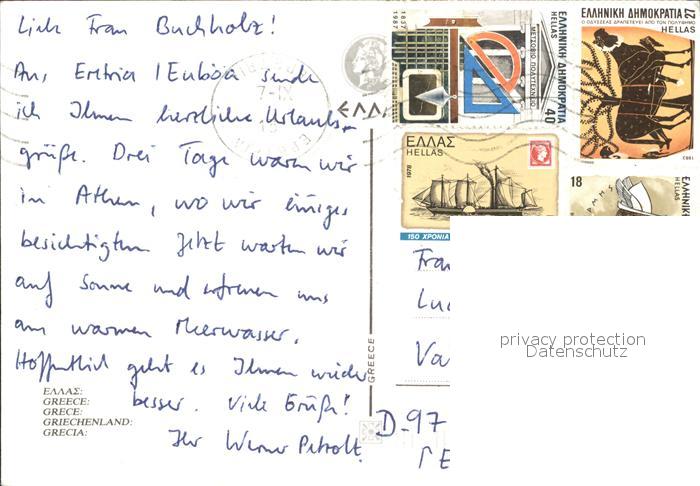 Liebe Frau Buchholz!
Aus Eretria / Euböa sende
ich Ihnen herzliche Urlaubs-
grüße. Drei Tage waren wir
in Athen, wo wir einiges
besichtigten. Jetzt warten wir
auf Sonne und erfreuen uns
am warmen Meerwasser.
Hoffentlich geht es Ihnen wieder
besser. Viele Grüße!
Ihr Werner Petzolt.
ΕΛΛΑΣ:
GREECE:
GRECE:
GRIECHENLAND:
GRECIA:
GREECE
ΕΛΛ
1837
1987
ΜΕΤΣΟΒΙΟ ΠΟΛΥΤΕΧΝΕΙΟ
ΕΛΛΗΝΙΚΗ ΔΗΜΟΚΡΑΤΙΑ
HELLAS
40
ΕΛΛΗΝΙΚΗ ΔΗΜΟΚΡΑΤΙΑ 27
Ο ΟΔΥΣΣΕΑΣ ΔΡΑΠΕΤΕΥΕΙ ΑΠΟ ΤΟΝ ΠΟΛΥΦΗΜΟ
HELLAS
1983
ΕΛΛΑΣ
HELLAS
1978
150 ΧΡΟΝΙΑ
18
ΕΛΛΗΝΙΚ
HELLAS
Frau
Lu
Va
D-97
privacy protection
Datenschutz